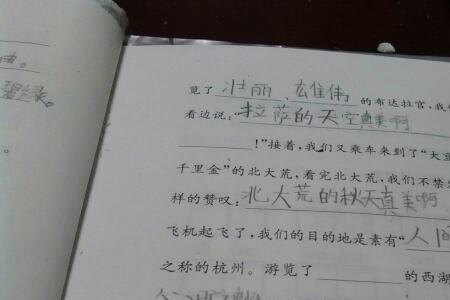 碧绿。
览了壮丽、雄伟的布达拉宫，我们
看边说："拉萨的天空真美啊
！"接着，我们又乘车来到了"大豆
千里金"的北大荒，看完北大荒，我们不禁
样的赞叹：北大荒的秋天真美啊
飞机起飞了，我们的目的地是素有"人间
之称的杭州。游览了的西湖